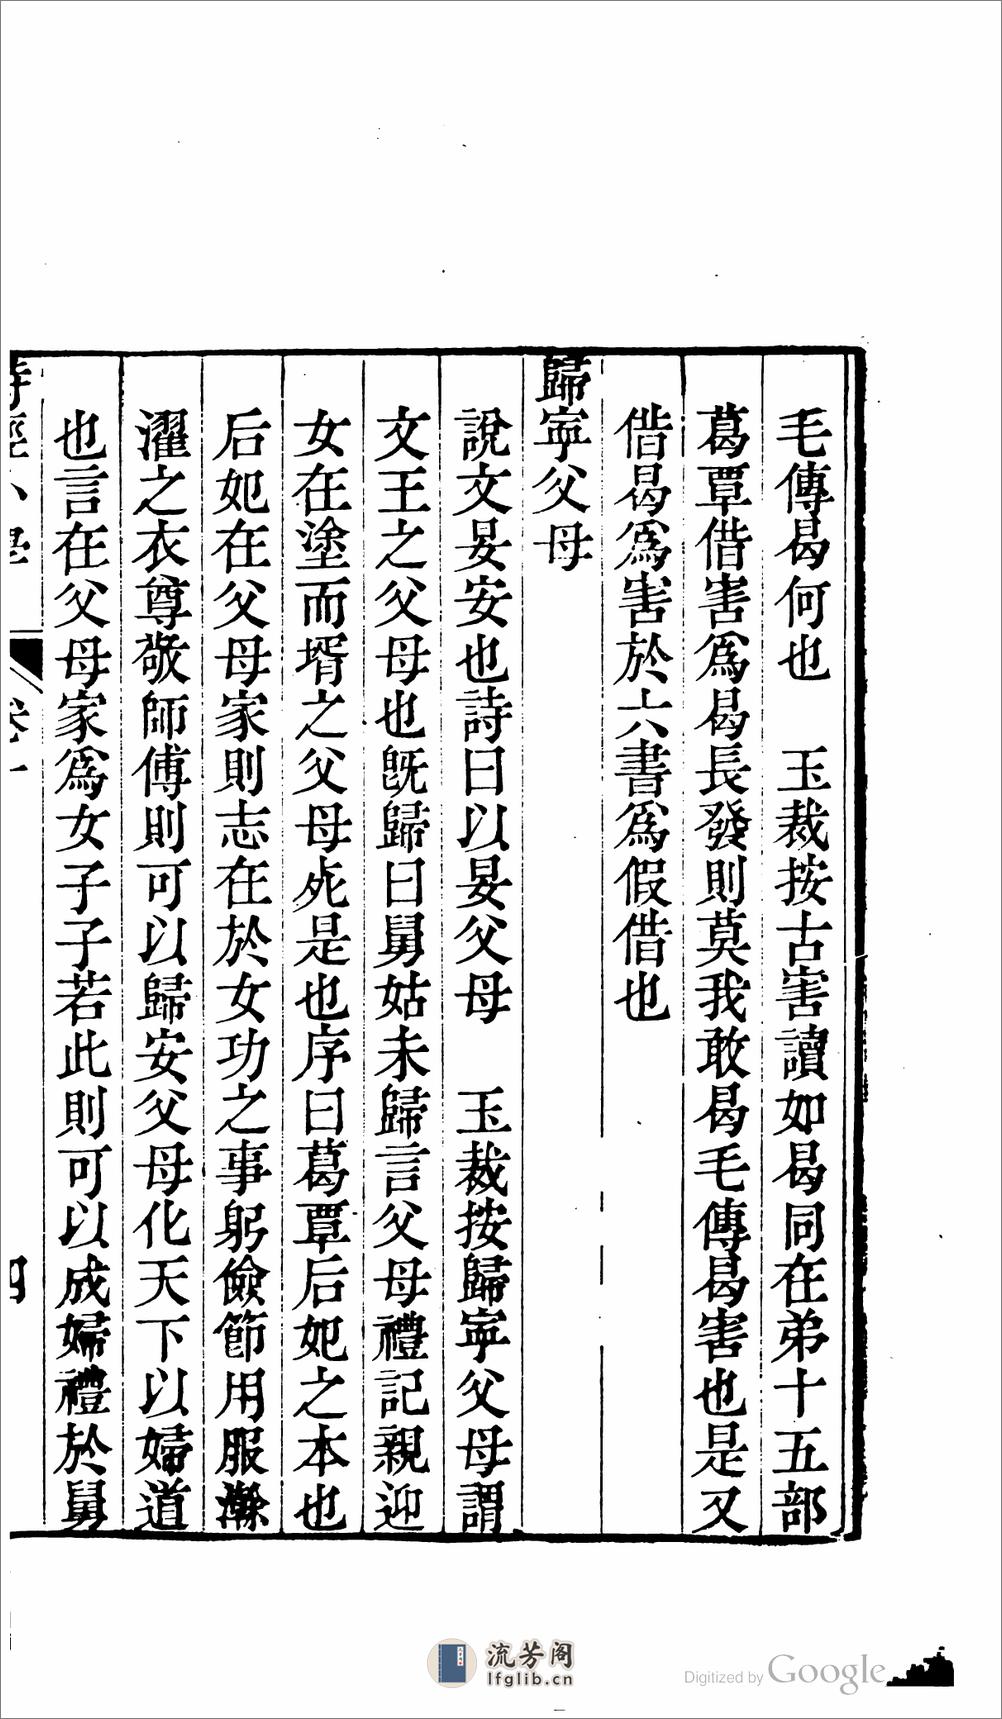 毛傳曷何也　玉裁按古害讀如曷同在弟十五部
葛覃借害爲曷長發則莫我敢曷毛傳曷害也是又
借曷爲害於六書爲假借也
歸寧父母
說文晏安也詩曰以晏父母　玉裁按歸寧父母謂
文王之父母也旣歸曰舅姑未歸言父母禮記親迎
女在塗而壻之父母死是也序曰葛覃后妃之本也
后妃在父母家則志在於女功之事躬儉節用服澣
濯之衣尊敬師傅則可以歸安父母化天下以婦道
也言在父母家爲女子子若此則可以成婦禮於舅
詩經小學 卷一 四
流芳阁
lfglib.cn
Digitized by Google